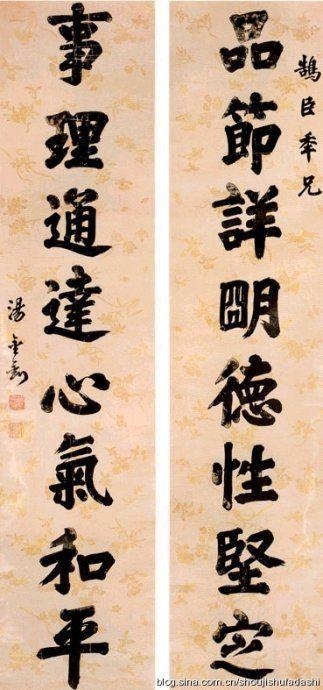 鵠臣季兄
品節詳明德性堅定
事理通達心氣和平
湯金釗
blog.sina.com.cn/shoujishufadashi